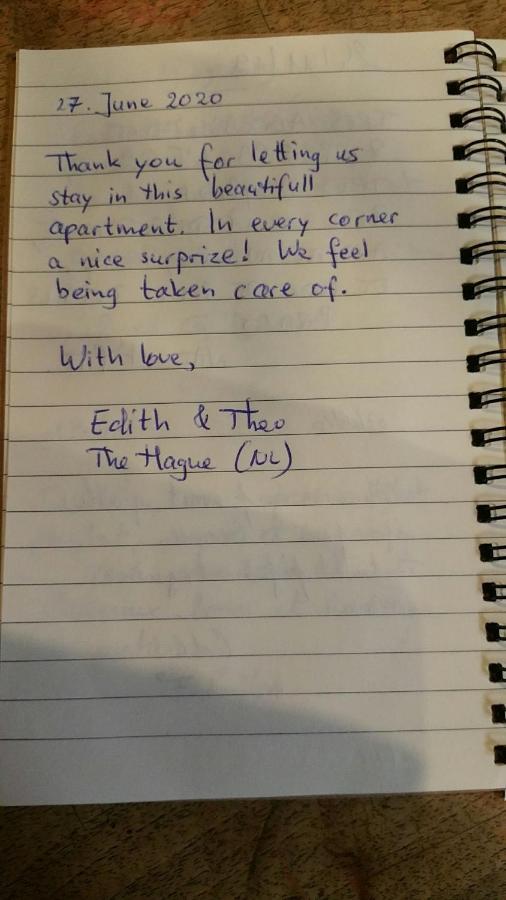 27. June 2020
Thank you for letting us
stay in this beautifull
apartment. In every corner
a nice surprize! We feel
being taken care of.
With love,
Edith & Theo
The Hague (NL)